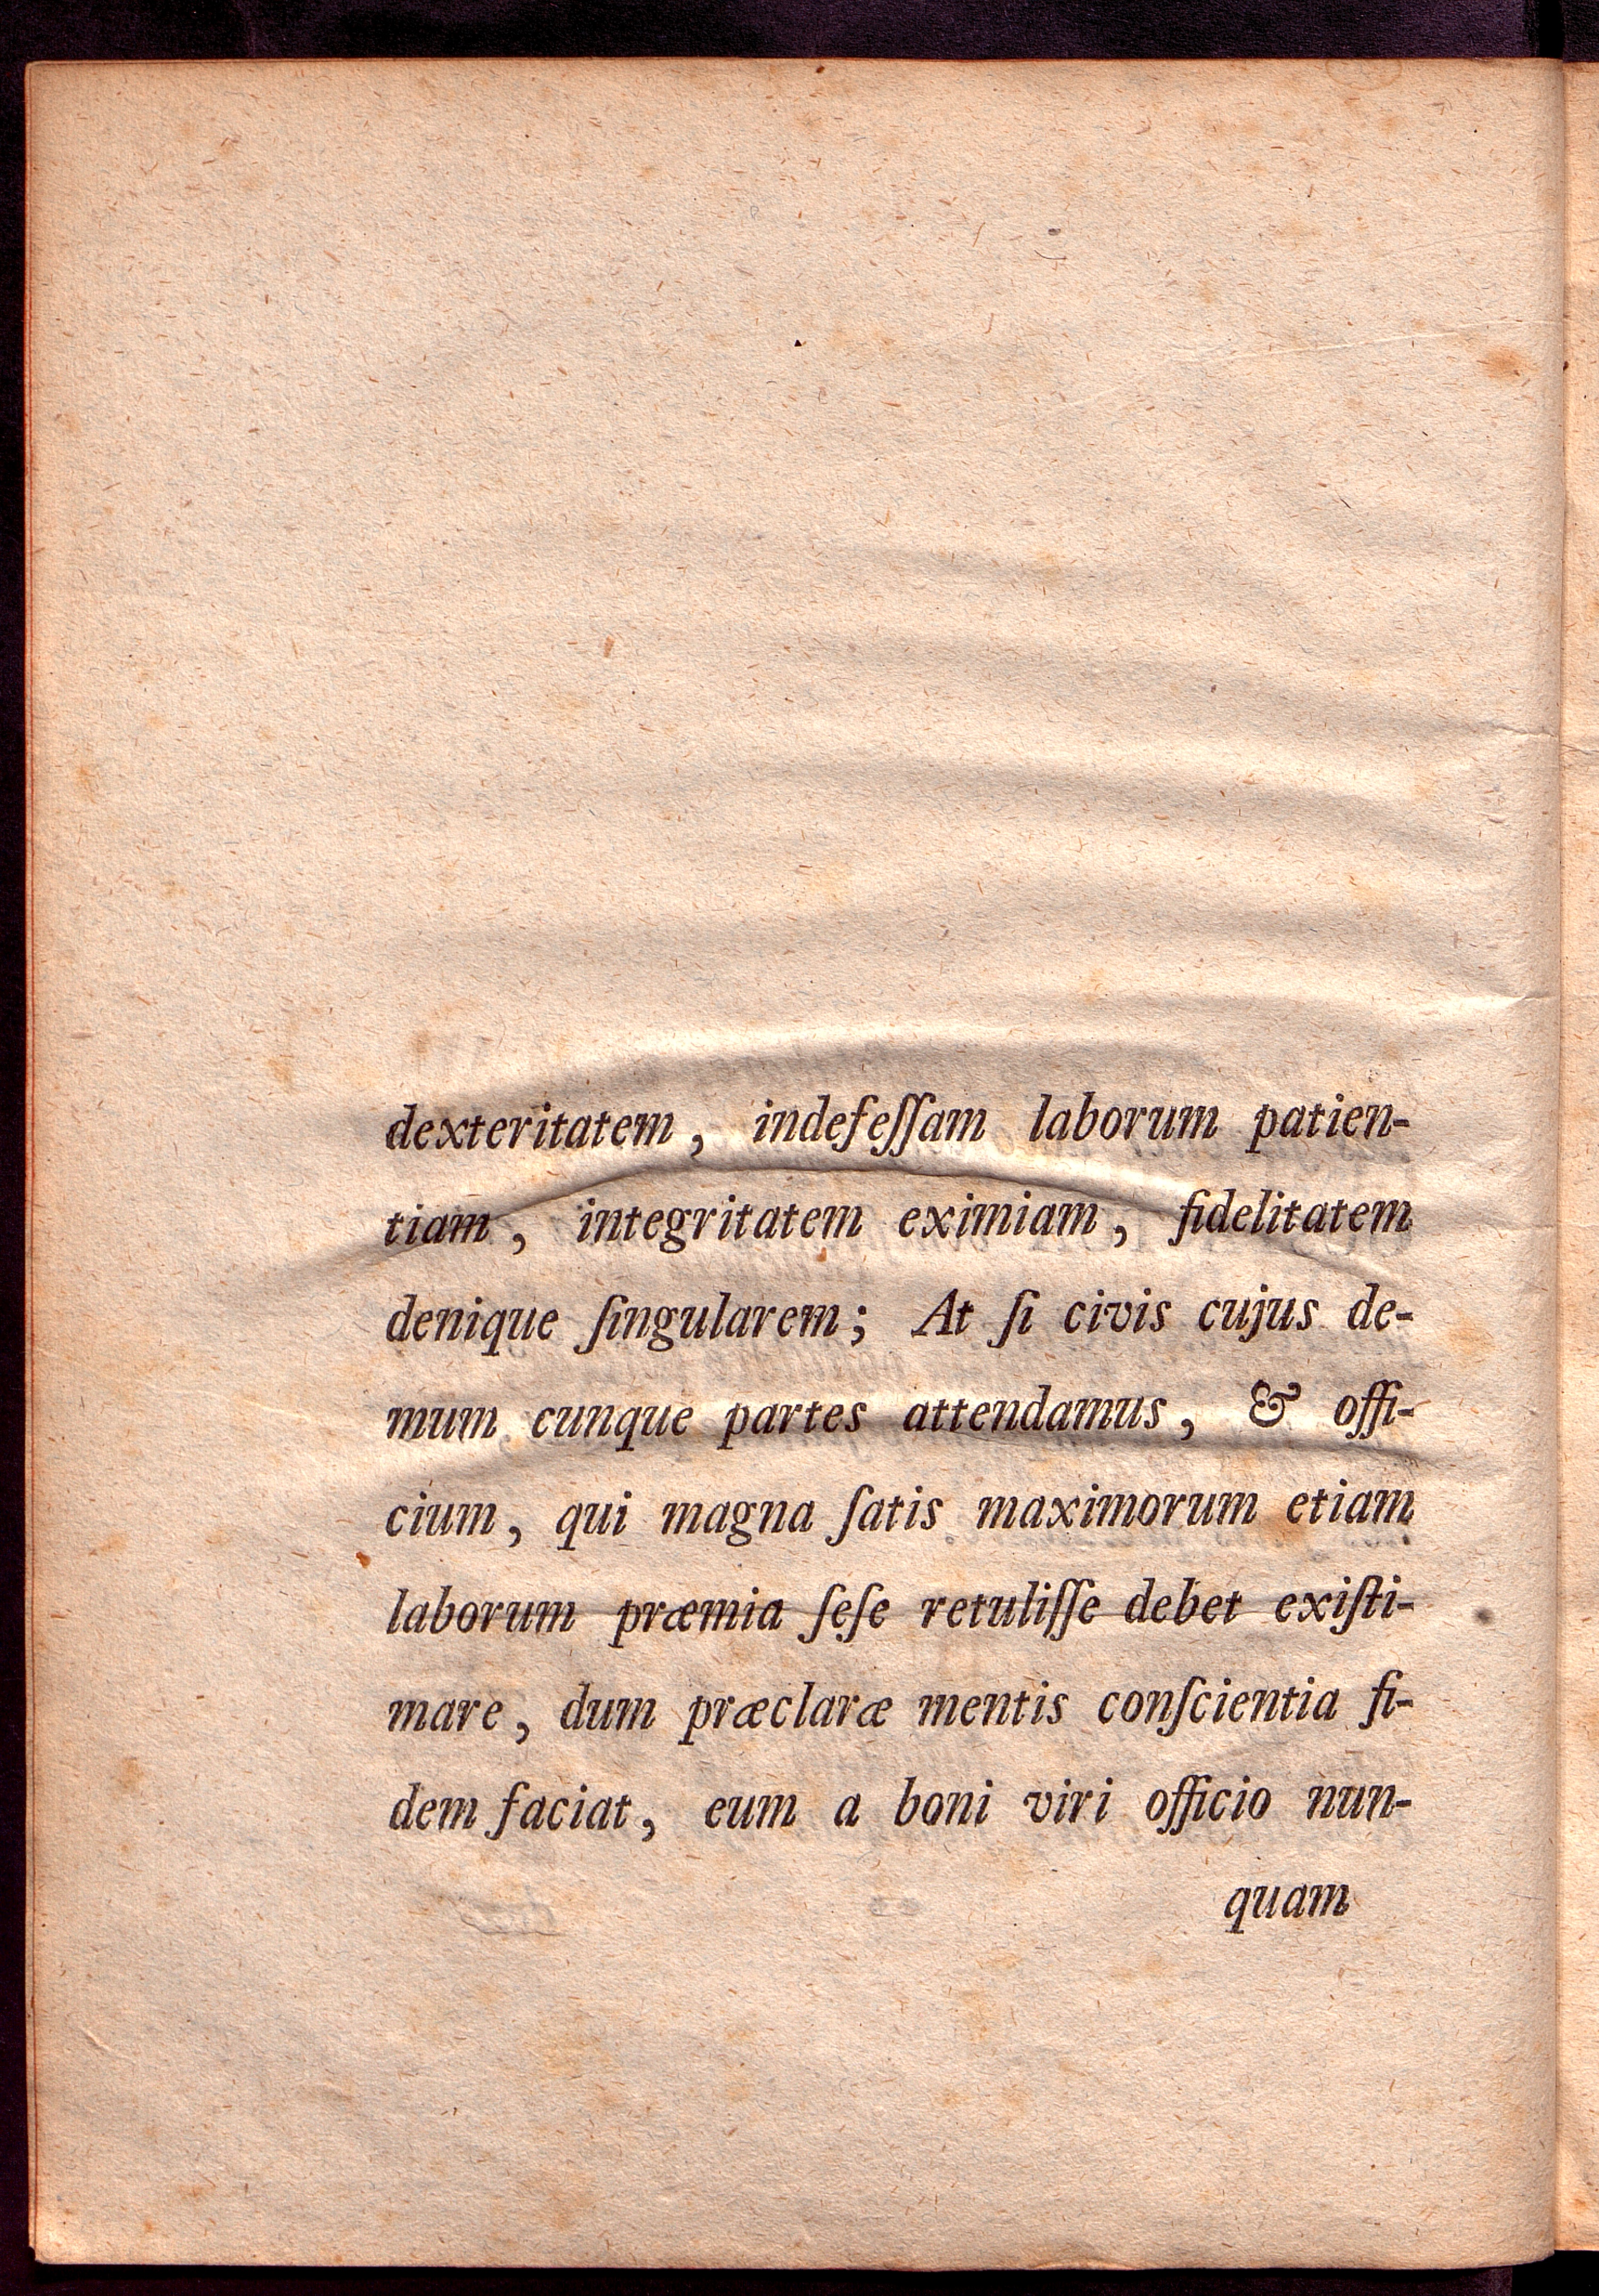 dexteritatem, indefeſſam laborum patien-
tiam, integritatem eximiam, fidelitatem
denique ſingularem; At ſi civis cujus de-
mum cunque partes attendamus, & offi-
cium, qui magna ſatis maximorum etiam
laborum præmia ſeſe retuliſſe debet exiſti-
mare, dum præclaræ mentis conſcientia fi-
dem faciat, eum a boni viri officio nun-
quam